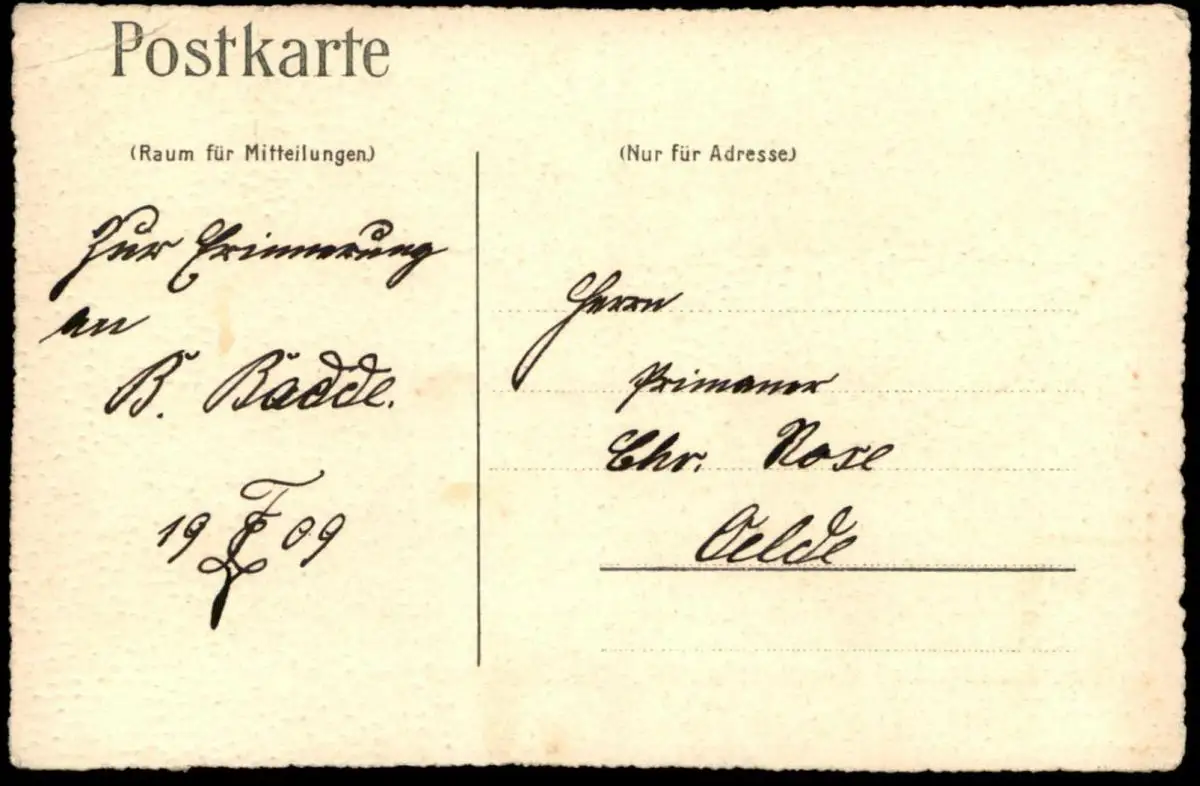 Postkarte
(Raum für Mitteilungen.)
Zur Erinnerung
an
B. Badde.
19 09
(Nur für Adresse.)
Herrn
Primaner
Chr. Rose
Oelde